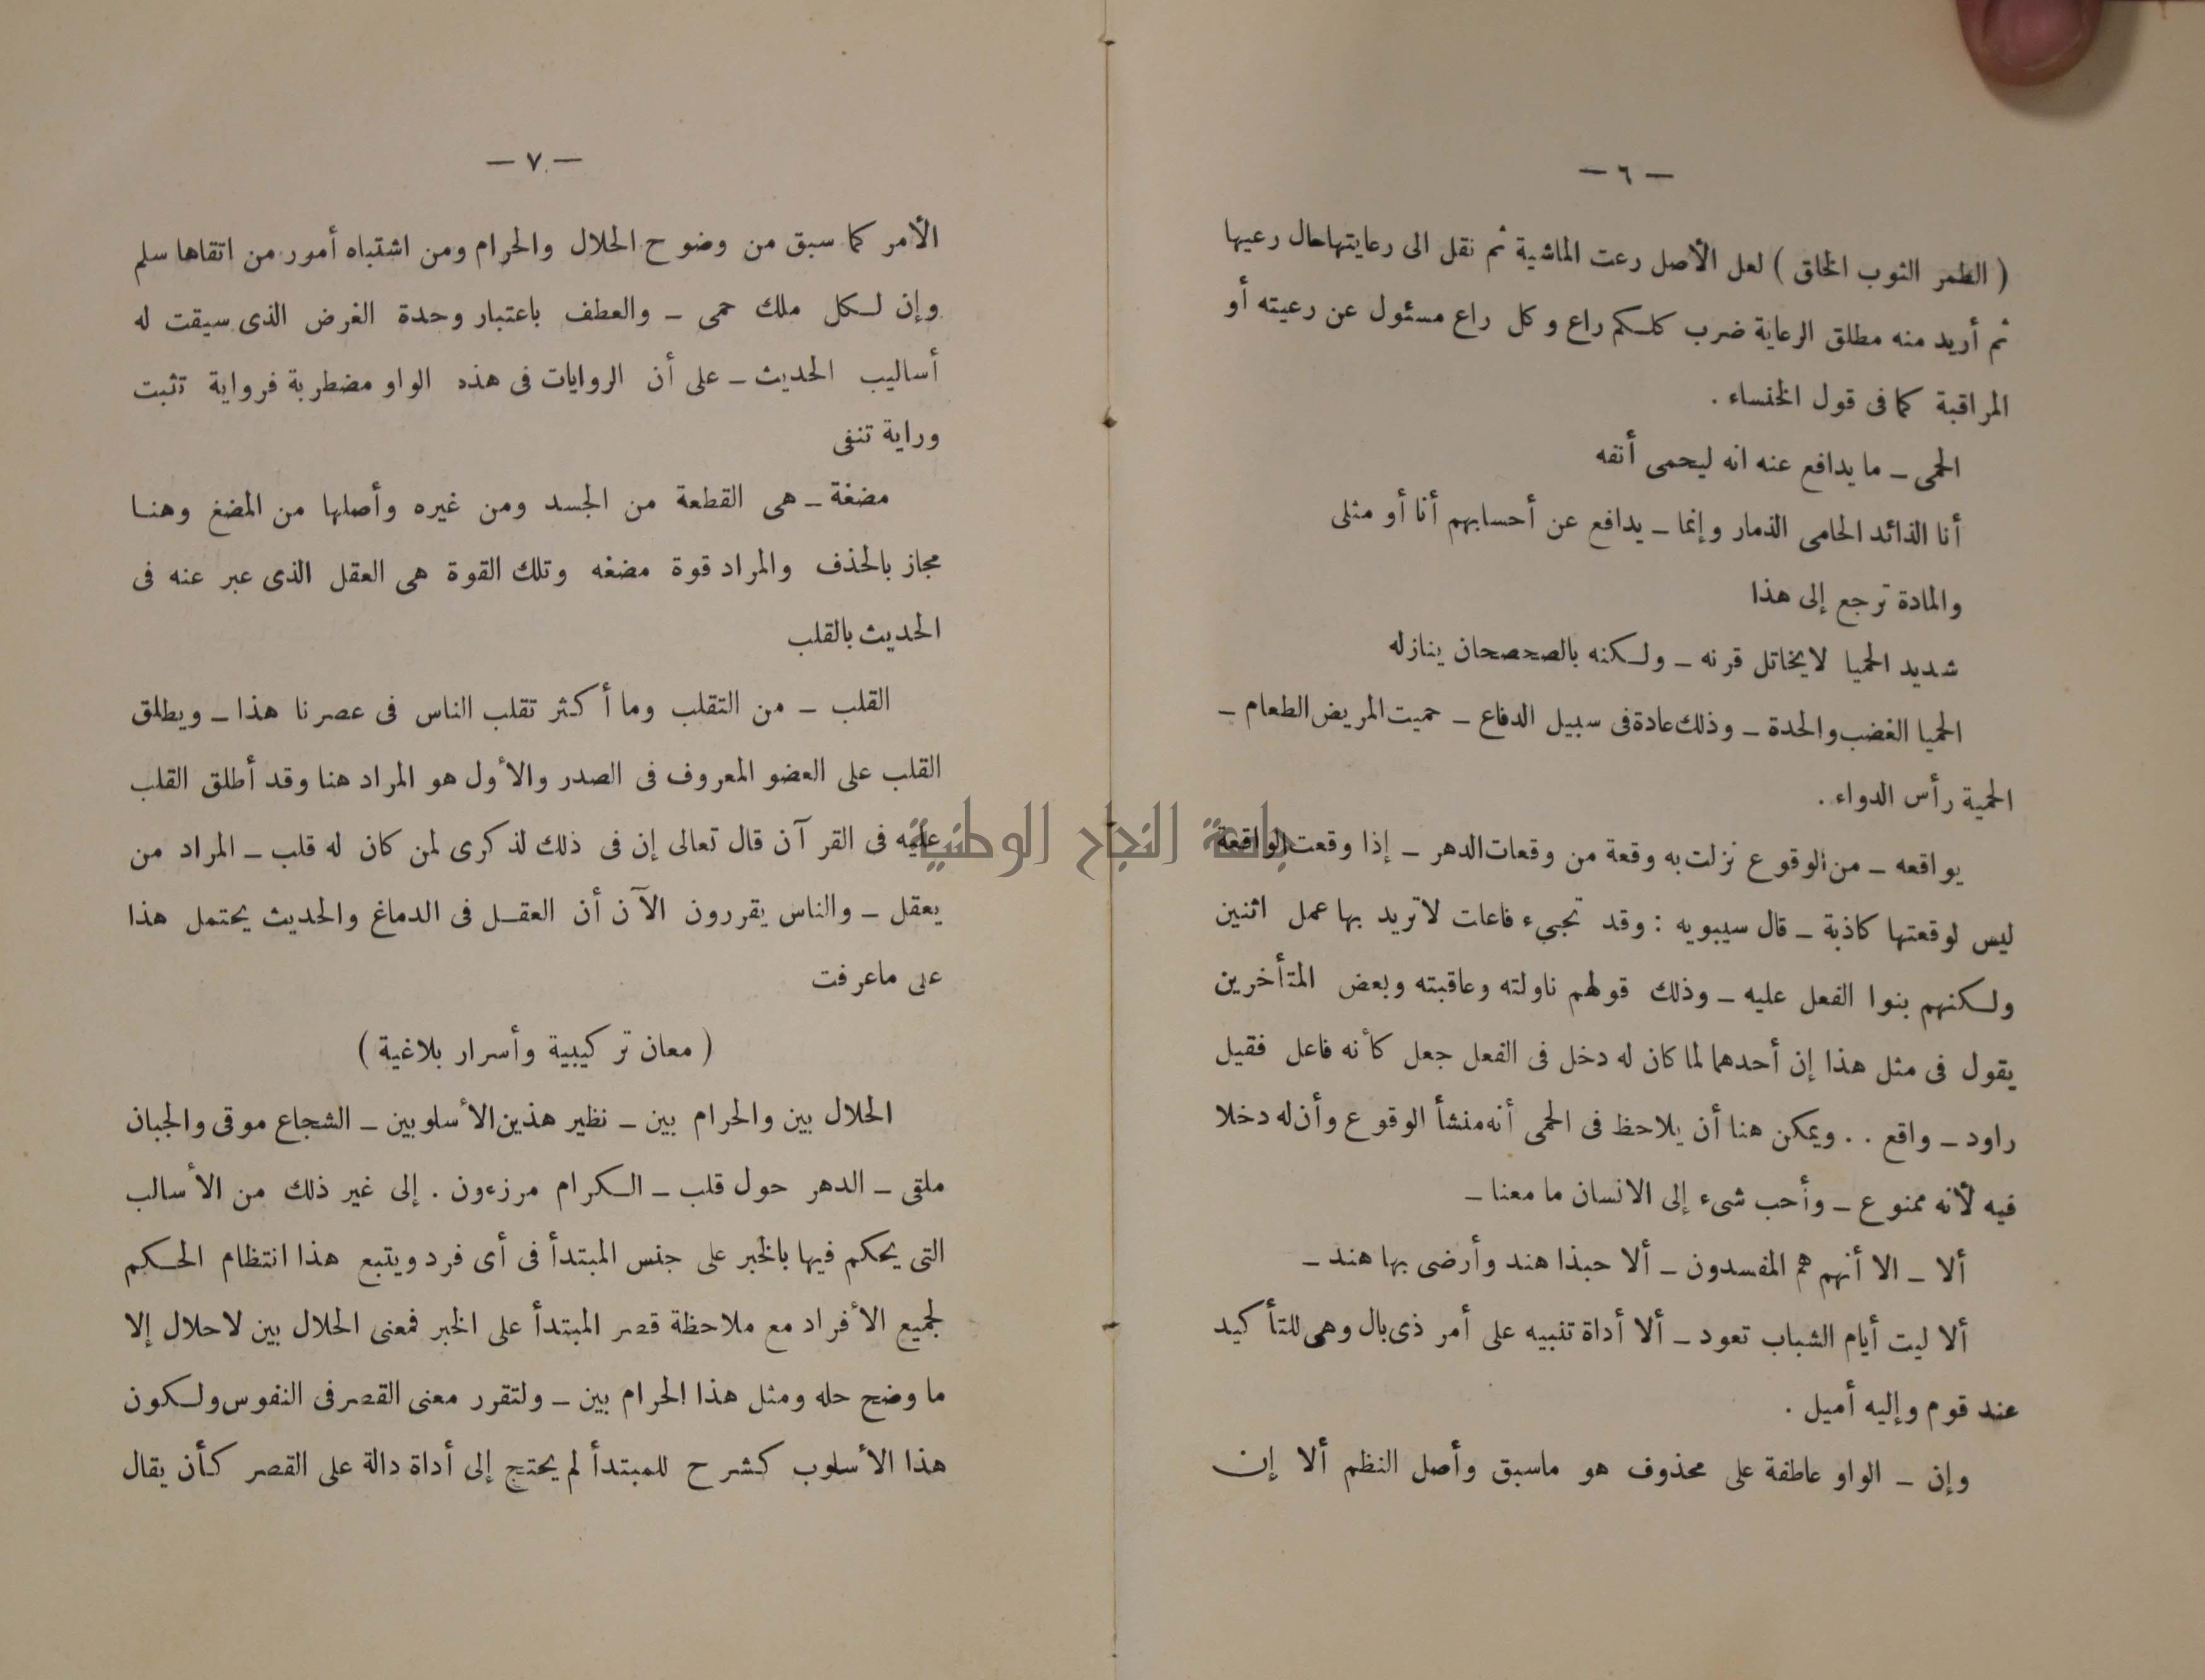 — ٦ —
( الطمر الثوب الخاق ) لعل الأصل رعت الماشية ثم نقل الى رعايتها حال رعيها
ثم أريد منه مطلق الرعاية ضرب كلكم راع وكل راع مسئول عن رعيته أو
المراقبة كما فى قول الخنساء .
الحمى – ما يدافع عنه انه ليحمى أنقه
أنا الذائد الحامى الذمار وإنما – يدافع عن أحسابهم أنا أو مثلى
والمادة ترجع إلى هذا
شديد الحميا لا يخاتل قرنه – ولكنه بالصحصحان ينازله
الحميا الغضب والحدة – وذلك عادة فى سبيل الدفاع – حميت المريض الطعام –
الحمية رأس الدواء .
يواقعه – من الوقوع نزلت به وقعة من وقعات الدهر – إذا وقعت الواقعة
ليس لوقعتها كاذبة – قال سيبويه : وقد تجىء فاعات لا تريد بها عمل اثنين
ولكنهم بنوا الفعل عليه – وذلك قولهم ناولته وعاقبته وبعض المتأخرين
يقول فى مثل هذا إن أحدهما لما كان له دخل فى الفعل جعل كأنه فاعل فقيل
راود – واقع . . ويمكن هنا أن يلاحظ فى الحمى أنه منشأ الوقوع وأن له دخلا
فيه لأنه ممنوع – وأحب شىء إلى الانسان ما معنا –
ألا – الا أنهم هم المفسدون – ألا حبذا هند وأرضى بها هند –
ألا ليت أيام الشباب تعود – ألا أداة تنبيه على أمر ذى بال وهى للتأكيد
عند قوم وإليه أميل .
وإن – الواو عاطفة على محذوف هو ماسبق وأصل النظم ألا إن
— ٧ —
الأمر كما سبق من وضوح الحلال والحرام ومن اشتباه أمور من اتقاها سلم
وإن لكل ملك حمى – والعطف باعتبار وحدة الغرض الذى سيقت له
أساليب الحديث – على أن الروايات فى هذه الواو مضطربة فرواية تثبت
وراية تنفى
مضغة – هى القطعة من الجسد ومن غيره وأصلها من المضغ وهنا
مجاز بالحذف والمراد قوة مضغه وتلك القوة هى العقل الذى عبر عنه فى
الحديث بالقلب
القلب – من التقلب وما أكثر تقلب الناس فى عصرنا هذا – ويطلق
القلب على العضو المعروف فى الصدر والأول هو المراد هنا وقد أطلق القلب
عليه فى القرآن قال تعالى إن فى ذلك لذكرى لمن كان له قلب – المراد من
يعقل – والناس يقررون الآن أن العقل فى الدماغ والحديث يحتمل هذا
على ماعرفت
( معان تركيبية وأسرار بلاغية )
الحلال بين والحرام بين – نظير هذين الأسلوبين – الشجاع موقى والجبان
ملقى – الدهر حول قلب – الكرام مرزءون . إلى غير ذلك من الأسالب
التى يحكم فيها بالخبر على جنس المبتدأ فى أى فرد ويتبع هذا انتظام الحكم
لجميع الأفراد مع ملاحظة قصر المبتدأ على الخبر فمعنى الحلال بين لا حلال إلا
ما وضح حله ومثل هذا الحرام بين – ولتقرر معنى القصر فى النفوس ولكون
هذا الأسلوب كشرح للمبتدأ لم يحتج إلى أداة دالة على القصر كأن يقال
جامعة النجاح الوطنية